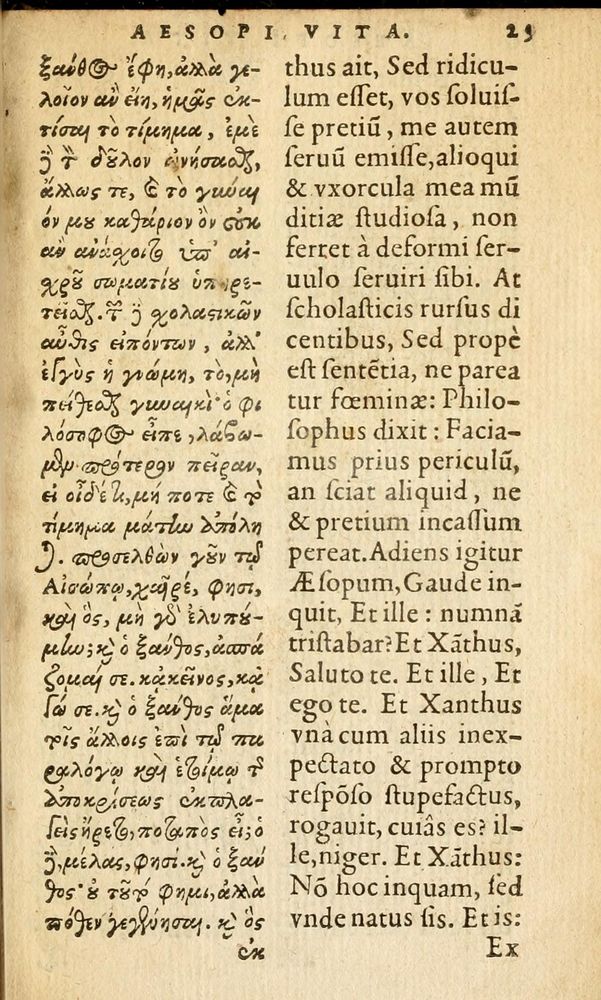 AESOPI VITA. 25
ξανθος ἔφη, ἀλλὰ γε-
λοῖον ἂν εἴη, ἡμᾶς ἐκ-
τίσαι τὸ τίμημα, ἐμὲ
δὲ τὸν δοῦλον ὠνήσασθαι,
ἄλλως τε, καὶ τὸ γυναι
όν μου καθάριον ὂν οὐκ
ἂν ἀνάσχοιτο ὑπ' αἰ-
χροῦ σωματίου ὑπηρε-
τεῖσθαι. τῶν δὲ σχολαστικῶν
αὖθις εἰπόντων, ἀλλ'
ἐγγὺς ἡ γνώμη, τὸ, μὴ
πείθεσθαι γυναικί· ὁ φι
λόσοφος εἶπε, λάβω-
μεν πρότερον πεῖραν,
εἰ οἶδέ τι, μή ποτε καὶ τὸ
τίμημα μάτην ἀπόλη
ται. προσελθὼν γοῦν τῷ
Αἰσώπῳ, χαῖρέ, φησι,
καὶ ὃς, μὴ γὰρ ἐλυπού-
μην; καὶ ὁ ξανθος, ἀσπά
ζομαί σε. κἀκεῖνος, κἀ
γώ σε. καὶ ὁ ξανθος ἅμα
τοῖς ἄλλοις ἐπὶ τῷ πα
ραλόγῳ καὶ ἑτοίμῳ τῆς
ἀποκρίσεως ἐκπλα-
γεὶς ἤρετο, ποταπὸς εἶ; ὁ
δὲ, μέλας, φησί. καὶ ὁ ξαν
θος· οὐ τοῦτό φημι, ἀλλὰ
πόθεν γεγέννησαι. καὶ ὃς
ἐκ
thus ait, Sed ridicu-
lum esset, vos soluis-
se pretiū, me autem
seruū emisse, alioqui
& vxorcula mea mū
ditiæ studiosa, non
ferret à deformi ser-
uulo seruiri sibi. At
scholasticis rursus di
centibus, Sed propè
est sentētia, ne parea
tur fœminæ: Philo-
sophus dixit: Facia-
mus prius periculū,
an sciat aliquid, ne
& pretium incassum
pereat. Adiens igitur
Æsopum, Gaude in-
quit, Et ille: numnā
tristabar? Et Xāthus,
Saluto te. Et ille, Et
ego te. Et Xanthus
vnà cum aliis inex-
pectato & prompto
respōso stupefactus,
rogauit, cuiâs es? il-
le, niger. Et Xāthus:
Nō hoc inquam, sed
vnde natus sis. Et is:
Ex